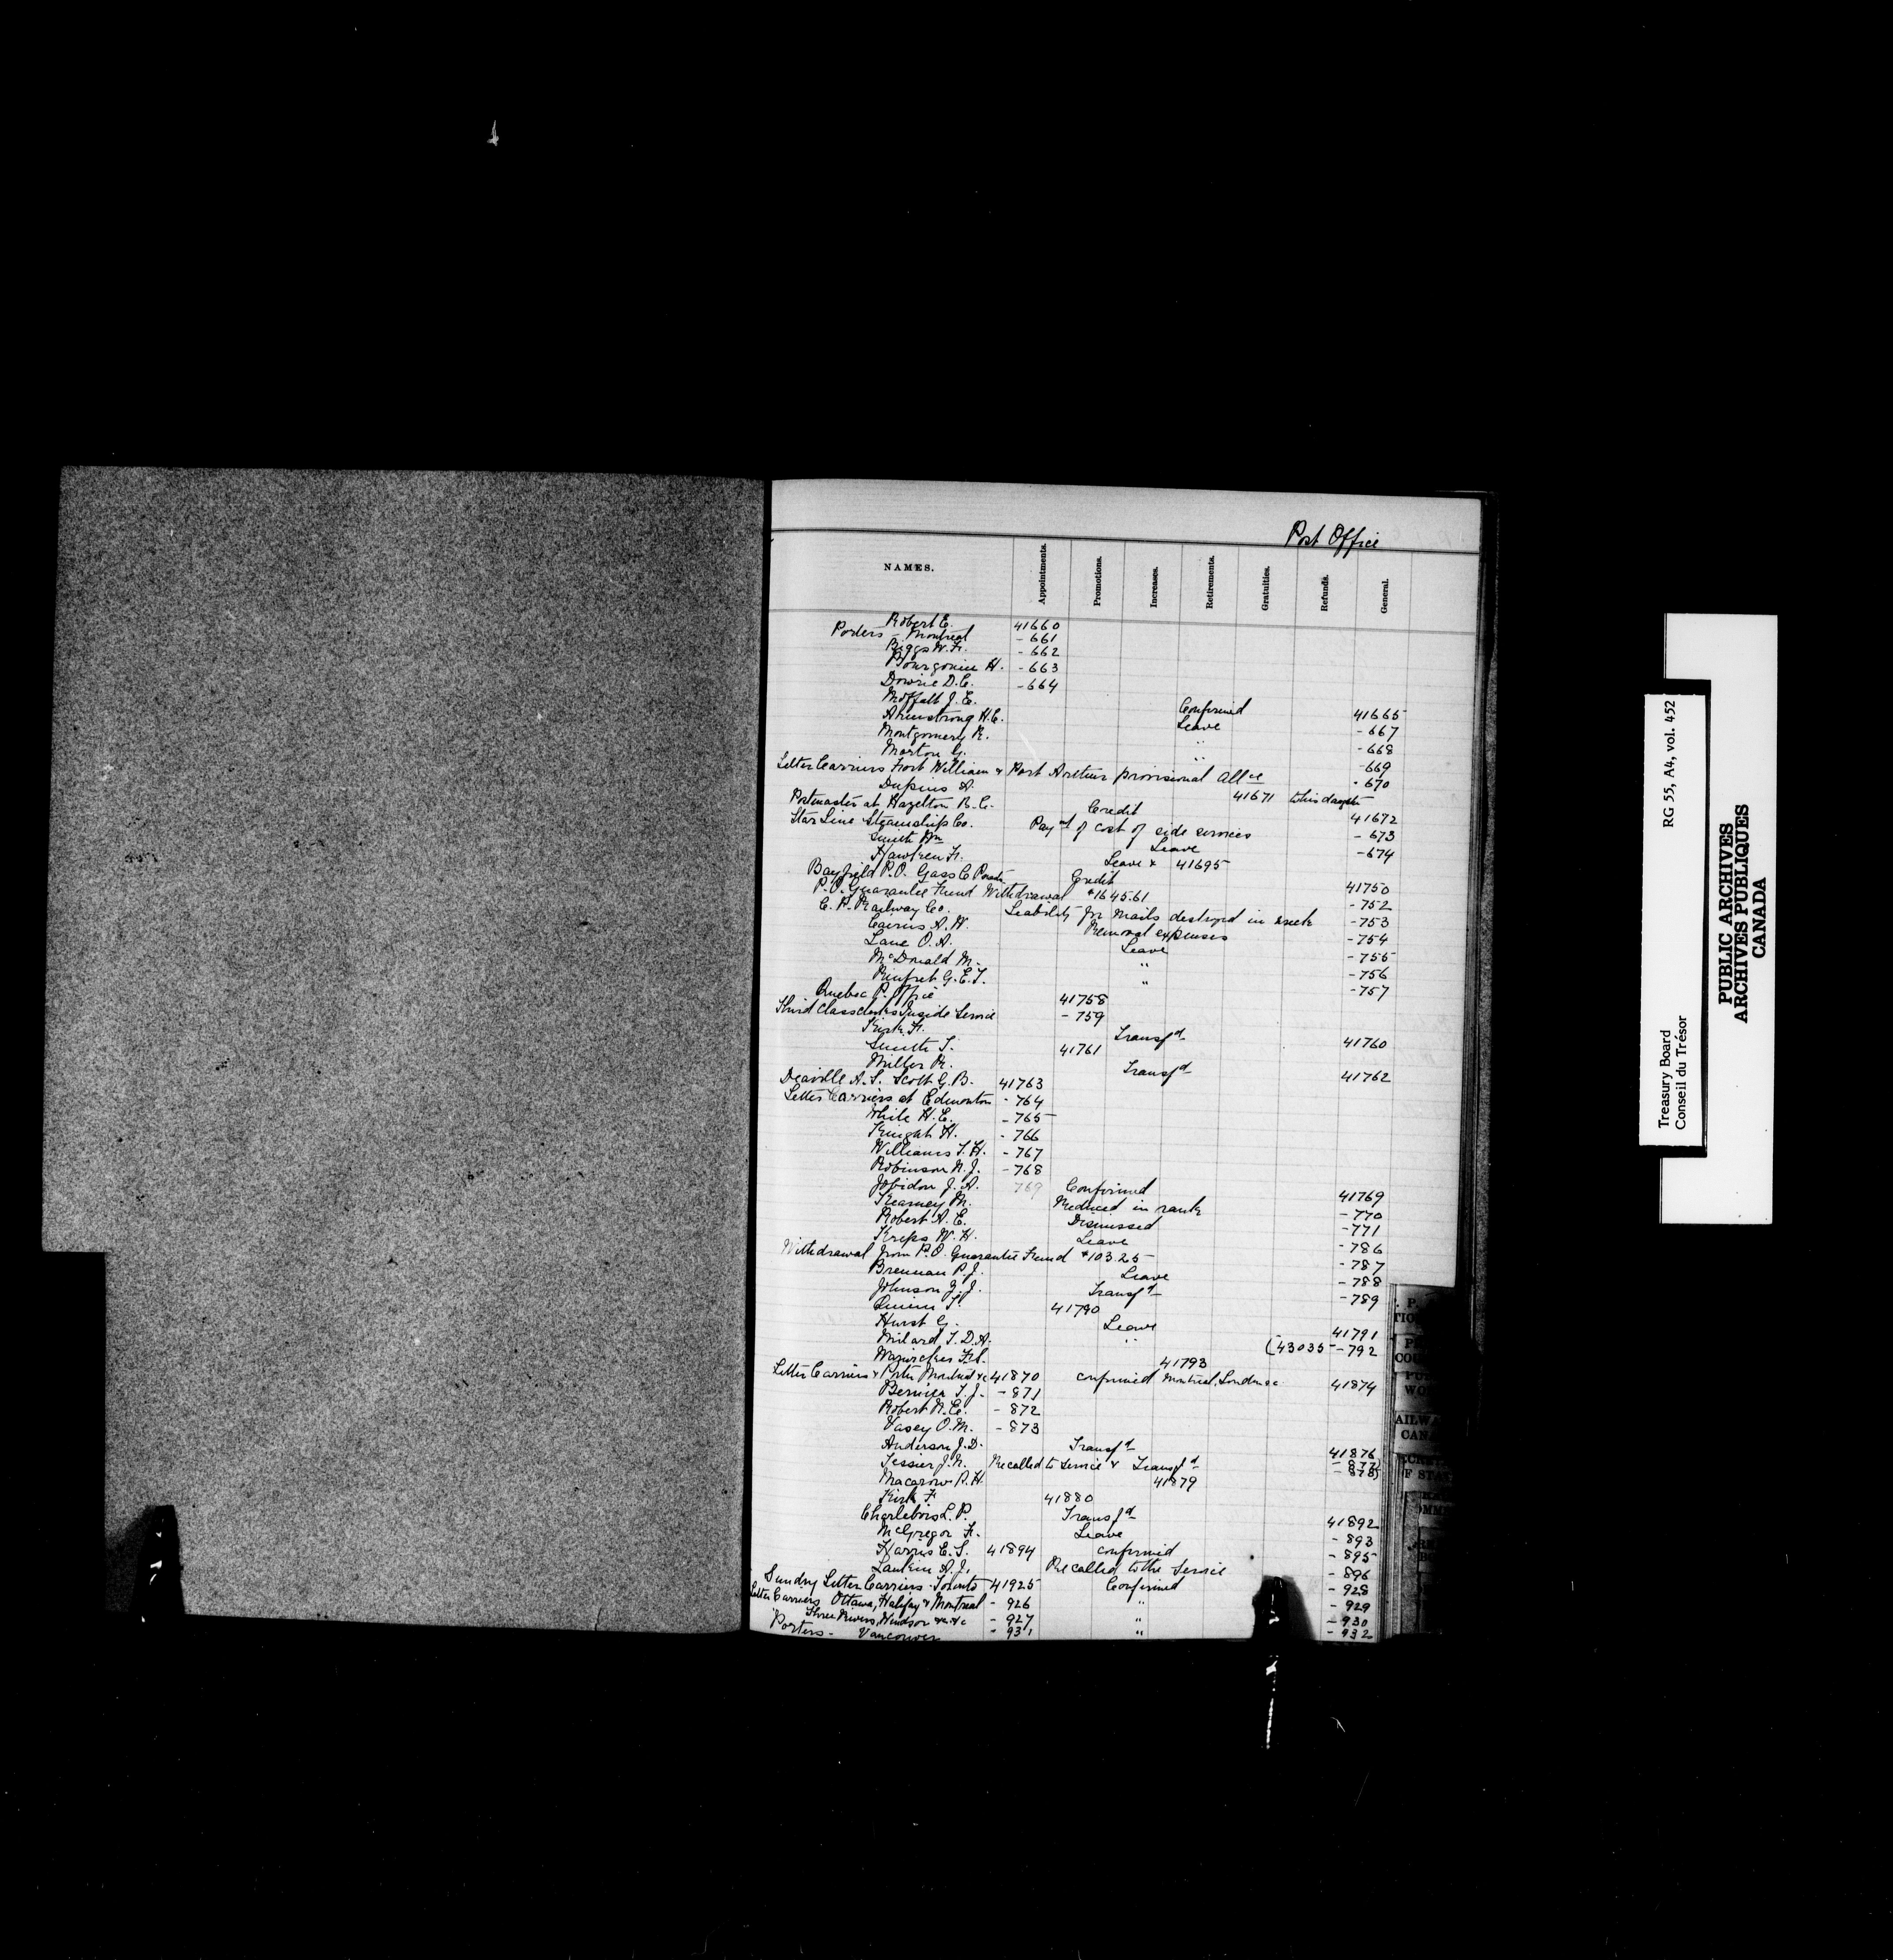 Post Office
NAMES. Appointments. Promotions. Increases. Retirements. Gratuities. Refunds. General.
Robert E. 41660
Porters - Montreal - 661
Biggs W. F. - 662
Bourgouin H. - 663
Dowrie D. C. - 664
Moffatt J. E. Confirmed 41665
Armstrong H. C. Leave - 667
Montgomery R. " - 668
Morton G. " - 669
Letter Carriers Fort William & Port Arthur provisional Allce - 670
Dupuis A. 41671 to his daughter
Postmaster at Hazelton B. C. Credit 41672
Star Line Steamship Co. Paymt of cost of side services - 673
Smith Wm Leave - 674
Hawken F. Leave & 41695
Bayfield P.O. Gass C Credit 41750
P.O. Guarantee Fund Withdrawal $1645.61 - 752
C. P. Railway Co. Liability for mails destroyed in - 753
Cairns A. W. Removal expenses - 754
Lane O. A. Leave - 755
McDonald M. " - 756
Renfret G. E. T. " - 757
Quebec P. Office 41758
Third Class clerks Inside Service - 759
Kirk F. Transfd 41760
Smith T. 41761
Miller R. Transfd 41762
Deaville A. S. Scott G. B. 41763
Letter Carriers at Edmonton - 764
White H. E. - 765
Knight H. - 766
Williams T. H. - 767
Robinson N. J. - 768
Jobidon J. A. 769 Confirmed 41769
Kearney M. Reduced in rank - 770
Robert A. E. Dismissed - 771
Kreps W. H. Leave - 786
Withdrawal from P.O. Guarantee Fund $103.25 - 787
Brennan P. J. Leave - 788
Johnson J. J. Transfd - 789
Quinn T. 41790
Hurst G. Leave 41791
Milard T. D. A. " (43035 - 792
F. S. 41793
Letter Carriers & Porter Montreal &c 41870 confirmed Montreal, London &c 41874
Bernier T. J. - 871
Robert N. E. - 872
Vasey O. M. - 873
Anderson J. D. Transfd 41876
Tessier J. N. Recalled to Service & Transfd - 877) - 878)
Macarow P. H. 41879
Kirk F 41880
Charlebois L. P. Transfd 41892
McGregor F. Leave - 893
Harris E. S. 41894 confirmed - 895
Lankin A. J. Recalled to the Service - 896
Sundry Letter Carriers - Toronto 41925 Confirmed - 928
Letter Carriers Ottawa, Halifax & Montreal - 926 " - 929
Three Rivers, Windsor &c &c - 927 " - 930
Porters - Vancouver - 931 " - 932
Treasury Board RG 55, A4, vol. 452
Conseil du Trésor
PUBLIC ARCHIVES
ARCHIVES PUBLIQUES
CANADA